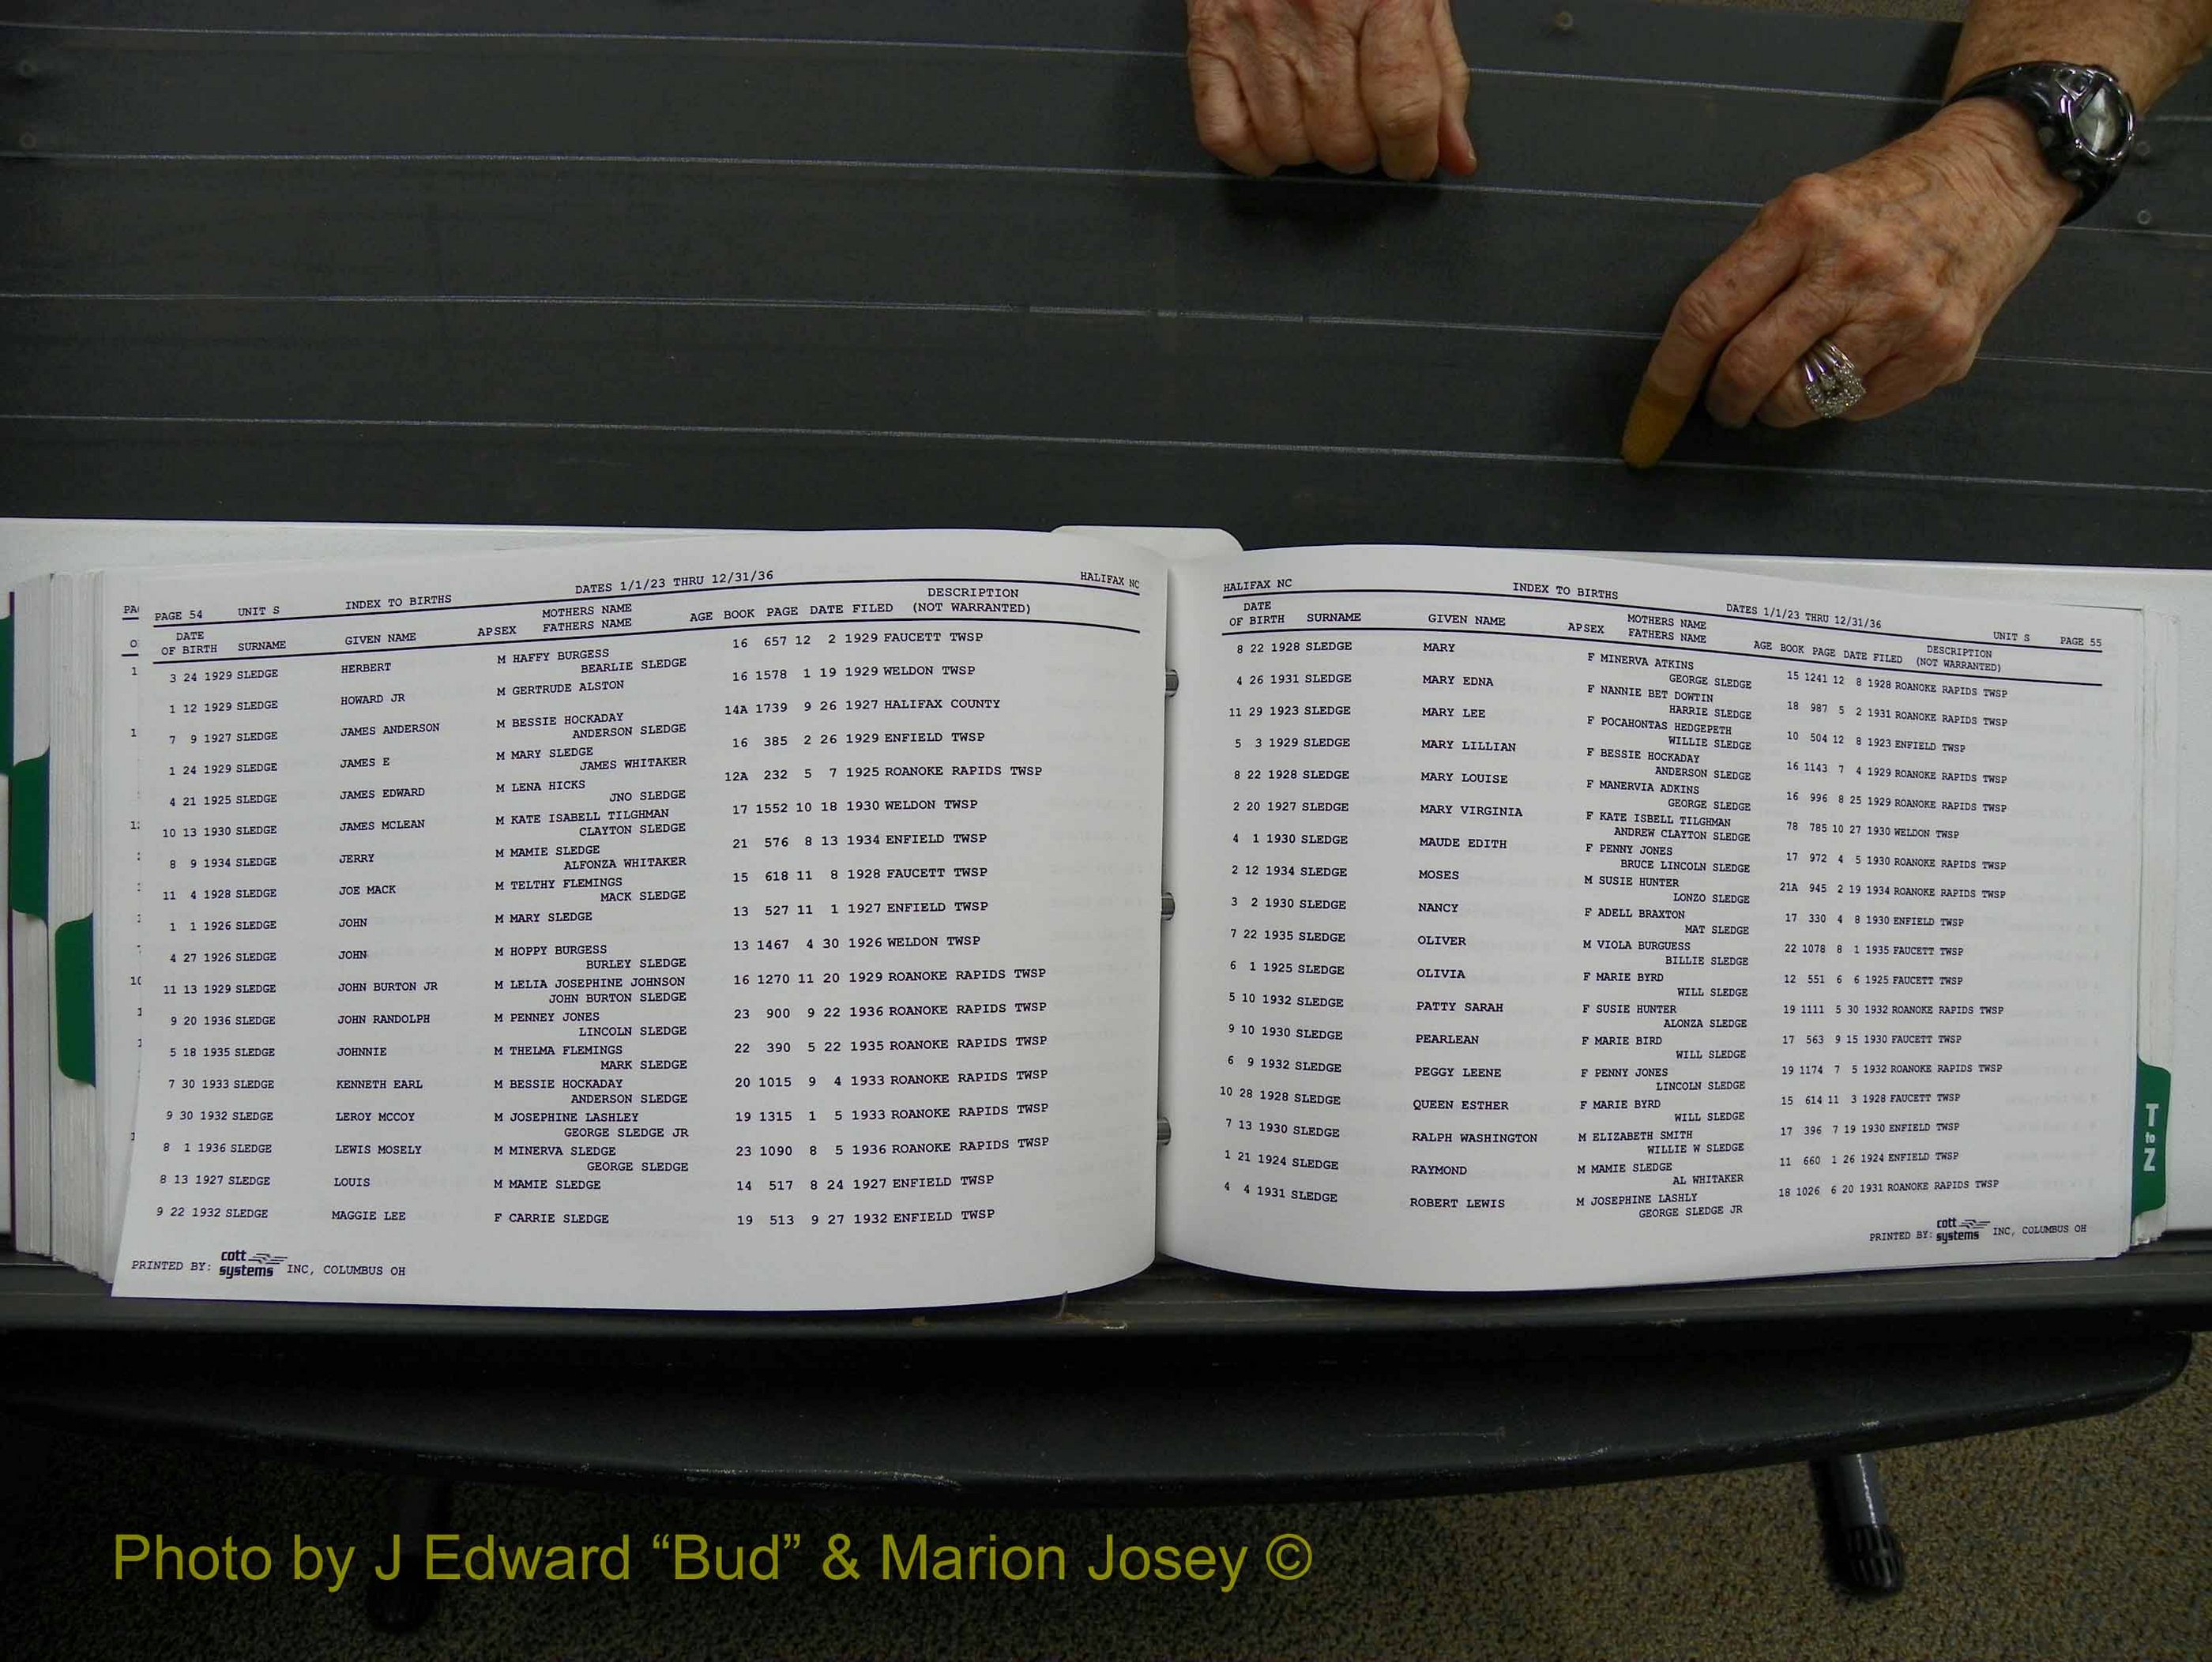 PAGE 54 UNIT S INDEX TO BIRTHS DATES 1/1/23 THRU 12/31/36 HALIFAX NC
DATE OF BIRTH SURNAME GIVEN NAME APSEX MOTHERS NAME FATHERS NAME AGE BOOK PAGE DATE FILED DESCRIPTION (NOT WARRANTED)
3 24 1929 SLEDGE HERBERT M HAFFY BURGESS 16 657 12 2 1929 FAUCETT TWSP
BEARLIE SLEDGE
1 12 1929 SLEDGE HOWARD JR M GERTRUDE ALSTON 16 1578 1 19 1929 WELDON TWSP
7 9 1927 SLEDGE JAMES ANDERSON M BESSIE HOCKADAY 14A 1739 9 26 1927 HALIFAX COUNTY
ANDERSON SLEDGE
1 24 1929 SLEDGE JAMES E M MARY SLEDGE 16 385 2 26 1929 ENFIELD TWSP
JAMES WHITAKER
4 21 1925 SLEDGE JAMES EDWARD M LENA HICKS 12A 232 5 7 1925 ROANOKE RAPIDS TWSP
JNO SLEDGE
10 13 1930 SLEDGE JAMES MCLEAN M KATE ISABELL TILGHMAN 17 1552 10 18 1930 WELDON TWSP
CLAYTON SLEDGE
8 9 1934 SLEDGE JERRY M MAMIE SLEDGE 21 576 8 13 1934 ENFIELD TWSP
ALFONZA WHITAKER
11 4 1928 SLEDGE JOE MACK M TELTHY FLEMINGS 15 618 11 8 1928 FAUCETT TWSP
MACK SLEDGE
1 1 1926 SLEDGE JOHN M MARY SLEDGE 13 527 11 1 1927 ENFIELD TWSP
4 27 1926 SLEDGE JOHN M HOPPY BURGESS 13 1467 4 30 1926 WELDON TWSP
BURLEY SLEDGE
11 13 1929 SLEDGE JOHN BURTON JR M LELIA JOSEPHINE JOHNSON 16 1270 11 20 1929 ROANOKE RAPIDS TWSP
JOHN BURTON SLEDGE
9 20 1936 SLEDGE JOHN RANDOLPH M PENNEY JONES 23 900 9 22 1936 ROANOKE RAPIDS TWSP
LINCOLN SLEDGE
5 18 1935 SLEDGE JOHNNIE M THELMA FLEMINGS 22 390 5 22 1935 ROANOKE RAPIDS TWSP
MARK SLEDGE
7 30 1933 SLEDGE KENNETH EARL M BESSIE HOCKADAY 20 1015 9 4 1933 ROANOKE RAPIDS TWSP
ANDERSON SLEDGE
9 30 1932 SLEDGE LEROY MCCOY M JOSEPHINE LASHLEY 19 1315 1 5 1933 ROANOKE RAPIDS TWSP
GEORGE SLEDGE JR
8 1 1936 SLEDGE LEWIS MOSELY M MINERVA SLEDGE 23 1090 8 5 1936 ROANOKE RAPIDS TWSP
GEORGE SLEDGE
8 13 1927 SLEDGE LOUIS M MAMIE SLEDGE 14 517 8 24 1927 ENFIELD TWSP
9 22 1932 SLEDGE MAGGIE LEE F CARRIE SLEDGE 19 513 9 27 1932 ENFIELD TWSP
PRINTED BY: cott systems INC, COLUMBUS OH
HALIFAX NC INDEX TO BIRTHS DATES 1/1/23 THRU 12/31/36 UNIT S PAGE 55
DATE OF BIRTH SURNAME GIVEN NAME APSEX MOTHERS NAME FATHERS NAME AGE BOOK PAGE DATE FILED DESCRIPTION (NOT WARRANTED)
8 22 1928 SLEDGE MARY F MINERVA ATKINS 15 1241 12 8 1928 ROANOKE RAPIDS TWSP
GEORGE SLEDGE
4 26 1931 SLEDGE MARY EDNA F NANNIE BET DOWTIN 18 987 5 2 1931 ROANOKE RAPIDS TWSP
HARRIE SLEDGE
11 29 1923 SLEDGE MARY LEE F POCAHONTAS HEDGEPETH 10 504 12 8 1923 ENFIELD TWSP
WILLIE SLEDGE
5 3 1929 SLEDGE MARY LILLIAN F BESSIE HOCKADAY 16 1143 7 4 1929 ROANOKE RAPIDS TWSP
ANDERSON SLEDGE
8 22 1928 SLEDGE MARY LOUISE F MANERVIA ADKINS 16 996 8 25 1929 ROANOKE RAPIDS TWSP
GEORGE SLEDGE
2 20 1927 SLEDGE MARY VIRGINIA F KATE ISBELL TILGHMAN 78 785 10 27 1930 WELDON TWSP
ANDREW CLAYTON SLEDGE
4 1 1930 SLEDGE MAUDE EDITH F PENNY JONES 17 972 4 5 1930 ROANOKE RAPIDS TWSP
BRUCE LINCOLN SLEDGE
2 12 1934 SLEDGE MOSES M SUSIE HUNTER 21A 945 2 19 1934 ROANOKE RAPIDS TWSP
LONZO SLEDGE
3 2 1930 SLEDGE NANCY F ADELL BRAXTON 17 330 4 8 1930 ENFIELD TWSP
MAT SLEDGE
7 22 1935 SLEDGE OLIVER M VIOLA BURGUESS 22 1078 8 1 1935 FAUCETT TWSP
BILLIE SLEDGE
6 1 1925 SLEDGE OLIVIA F MARIE BYRD 12 551 6 6 1925 FAUCETT TWSP
WILL SLEDGE
5 10 1932 SLEDGE PATTY SARAH F SUSIE HUNTER 19 1111 5 30 1932 ROANOKE RAPIDS TWSP
ALONZA SLEDGE
9 10 1930 SLEDGE PEARLEAN F MARIE BIRD 17 563 9 15 1930 FAUCETT TWSP
WILL SLEDGE
6 9 1932 SLEDGE PEGGY LEENE F PENNY JONES 19 1174 7 5 1932 ROANOKE RAPIDS TWSP
LINCOLN SLEDGE
10 28 1928 SLEDGE QUEEN ESTHER F MARIE BYRD 15 614 11 3 1928 FAUCETT TWSP
WILL SLEDGE
7 13 1930 SLEDGE RALPH WASHINGTON M ELIZABETH SMITH 17 396 7 19 1930 ENFIELD TWSP
WILLIE W SLEDGE
1 21 1924 SLEDGE RAYMOND M MAMIE SLEDGE 11 660 1 26 1924 ENFIELD TWSP
AL WHITAKER
4 4 1931 SLEDGE ROBERT LEWIS M JOSEPHINE LASHLY 18 1026 6 20 1931 ROANOKE RAPIDS TWSP
GEORGE SLEDGE JR
PRINTED BY: cott systems INC, COLUMBUS OH
T to Z
Photo by J Edward “Bud” & Marion Josey ©